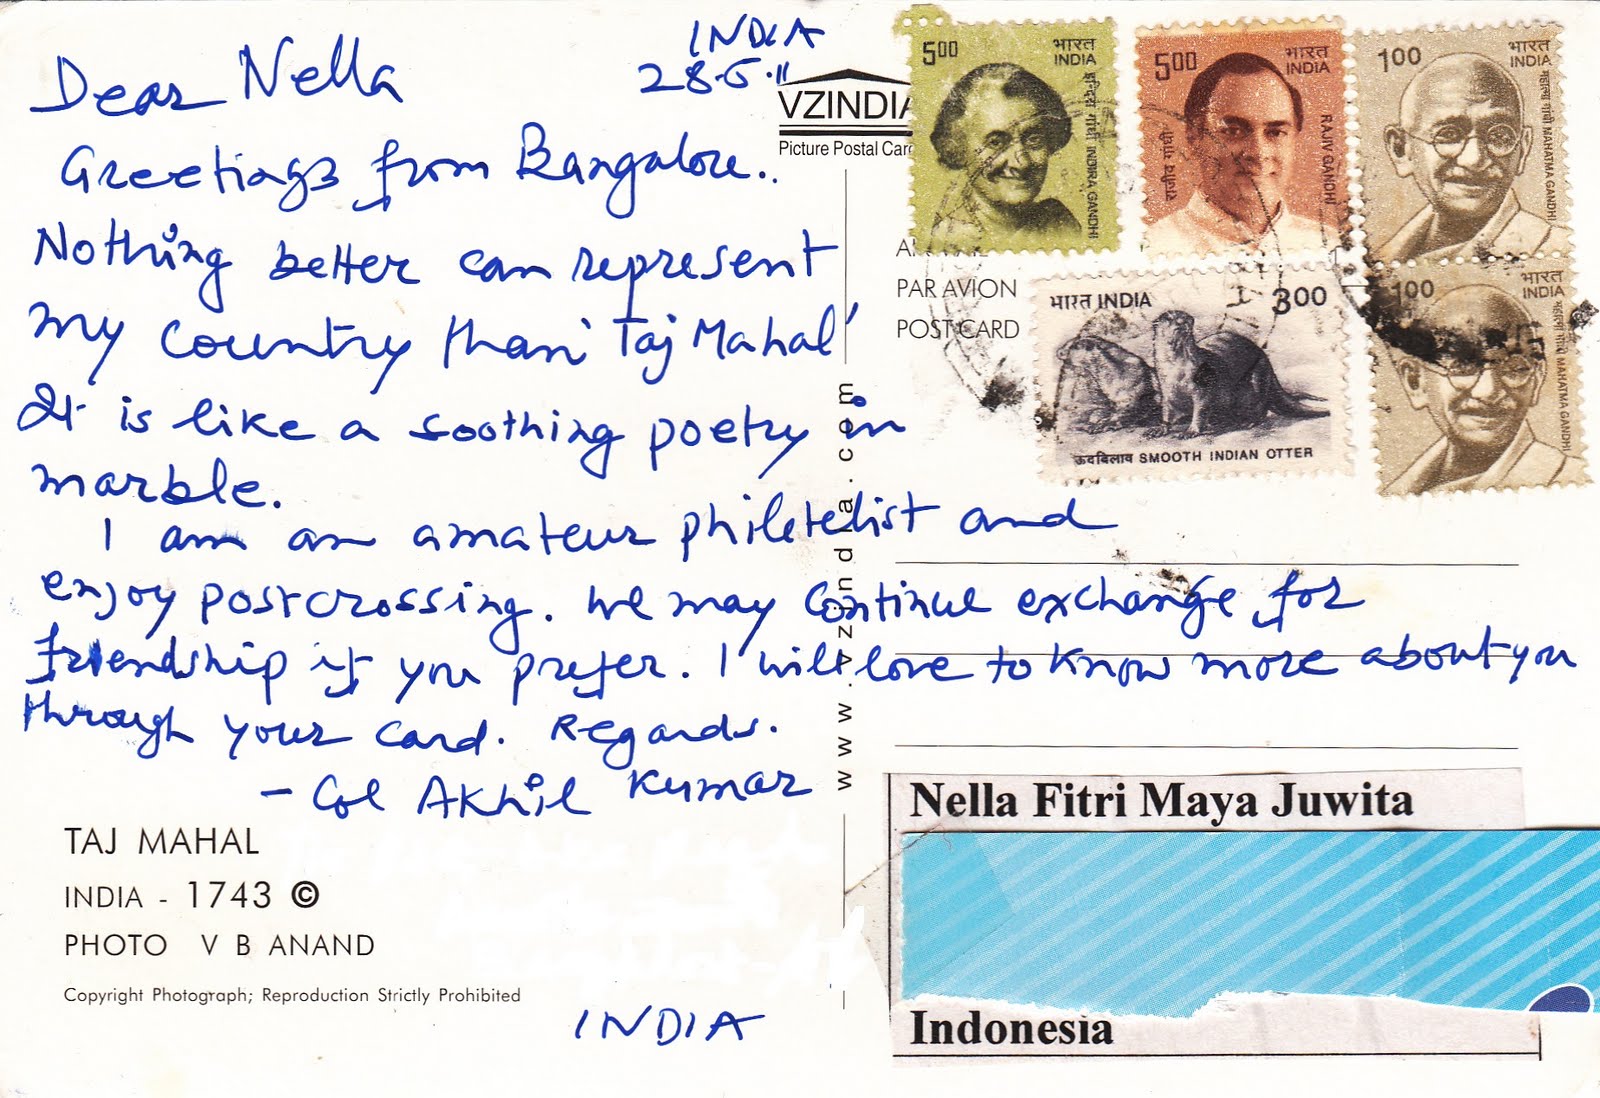 INDIA
28.5.11
Dear Nella
Greetings from Bangalore..
Nothing better can represent
my country than 'Taj Mahal'
It is like a soothing poetry in
marble.
I am an amateur philetelist and
enjoy postcrossing. We may continue exchange for
friendship if you prefer. I will love to know more about you
through your card. Regards.
- Col Akhil Kumar
TAJ MAHAL
INDIA - 1743 ©
PHOTO V B ANAND
Copyright Photograph; Reproduction Strictly Prohibited
INDIA
VZINDIA
Picture Postal Car
www.vzindia.com
500 भारत INDIA
INDIRA GANDHI
500 भारत INDIA
राजीव गांधी RAJIV GANDHI
1.00 भारत INDIA
महात्मा गांधी MAHATMA GANDHI
भारत INDIA 3.00
ऊदबिलाव SMOOTH INDIAN OTTER
1.00 भारत INDIA
MAHATMA GANDHI
PAR AVION
POST CARD
Nella Fitri Maya Juwita
Indonesia